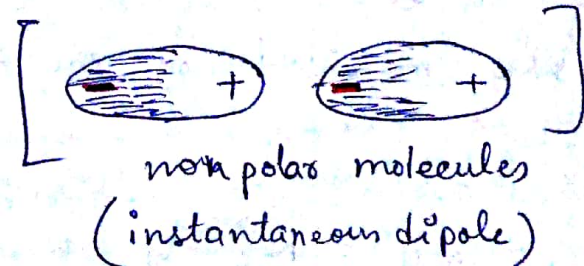 - + - +
non polar molecules
(instantaneous dipole)